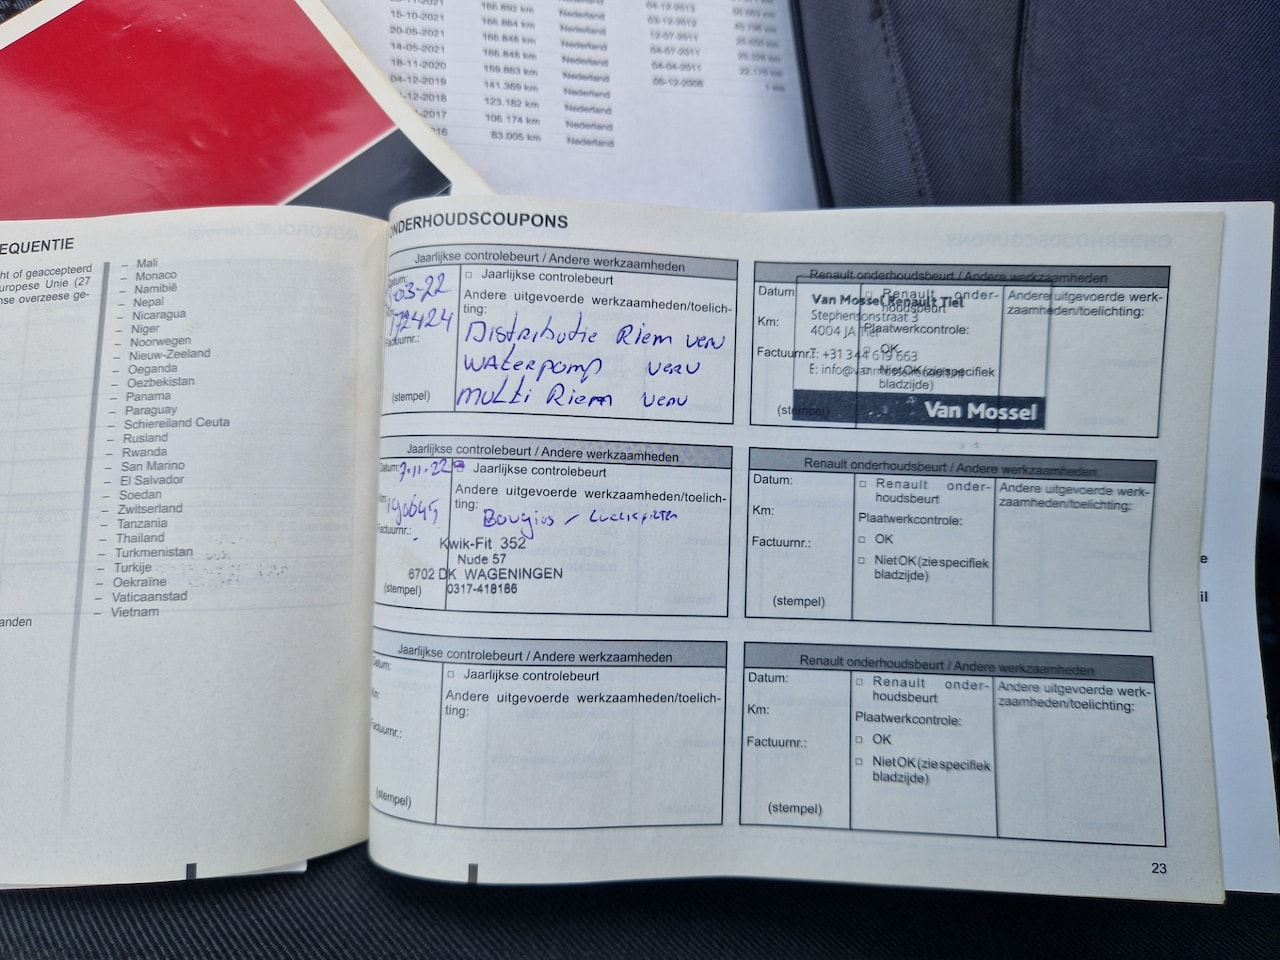 15-10-2021 166.864 km Nederland
20-05-2021 166.848 km Nederland
14-05-2021 166.848 km Nederland
18-11-2020 159.863 km Nederland
04-12-2019 141.369 km Nederland
-12-2018 123.182 km Nederland
-2017 106.174 km Nederland
16 83.005 km Nederland
04-07-2011
04-04-2011 22.175 km
05-12-2008 1 km
EQUENTIE
ht of geaccepteerd
uropese Unie (27
nse overzeese ge-
anden
– Mali
– Monaco
– Namibië
– Nepal
– Nicaragua
– Niger
– Noorwegen
– Nieuw-Zeeland
– Oeganda
– Oezbekistan
– Panama
– Paraguay
– Schiereiland Ceuta
– Rusland
– Rwanda
– San Marino
– El Salvador
– Soedan
– Zwitserland
– Tanzania
– Thailand
– Turkmenistan
– Turkije
– Oekraïne
– Vaticaanstad
– Vietnam
ONDERHOUDSCOUPONS
Jaarlijkse controlebeurt / Andere werkzaamheden
Datum:
03-22
172424
Factuurnr.:
(stempel)
Jaarlijkse controlebeurt
Andere uitgevoerde werkzaamheden/toelich-
ting:
Distributie Riem verv
Waterpomp verv
multi Riem verv
Renault onderhoudsbeurt / Andere werkzaamheden
Datum:
Km:
Factuurnr.:
(stempel)
Renault onder-
houdsbeurt
Plaatwerkcontrole:
OK
Niet OK (zie specifiek
bladzijde)
Andere uitgevoerde werk-
zaamheden/toelichting:
Van Mossel Renault Tiel
Stephensonstraat 3
4004 JA Tiel
T: +31 344 619 663
Van Mossel
Jaarlijkse controlebeurt / Andere werkzaamheden
Datum: 7-11-22
Km: 190695
Factuurnr.:
(stempel)
Jaarlijkse controlebeurt
Andere uitgevoerde werkzaamheden/toelich-
ting:
Bougies / Luchtfilter
Kwik-Fit 352
Nude 57
6702 DK WAGENINGEN
0317-418186
Renault onderhoudsbeurt / Andere werkzaamheden
Datum:
Km:
Factuurnr.:
(stempel)
Renault onder-
houdsbeurt
Plaatwerkcontrole:
OK
Niet OK (zie specifiek
bladzijde)
Andere uitgevoerde werk-
zaamheden/toelichting:
Jaarlijkse controlebeurt / Andere werkzaamheden
Datum:
Km:
Factuurnr.:
(stempel)
Jaarlijkse controlebeurt
Andere uitgevoerde werkzaamheden/toelich-
ting:
Renault onderhoudsbeurt / Andere werkzaamheden
Datum:
Km:
Factuurnr.:
(stempel)
Renault onder-
houdsbeurt
Plaatwerkcontrole:
OK
Niet OK (zie specifiek
bladzijde)
Andere uitgevoerde werk-
zaamheden/toelichting:
23
e
il